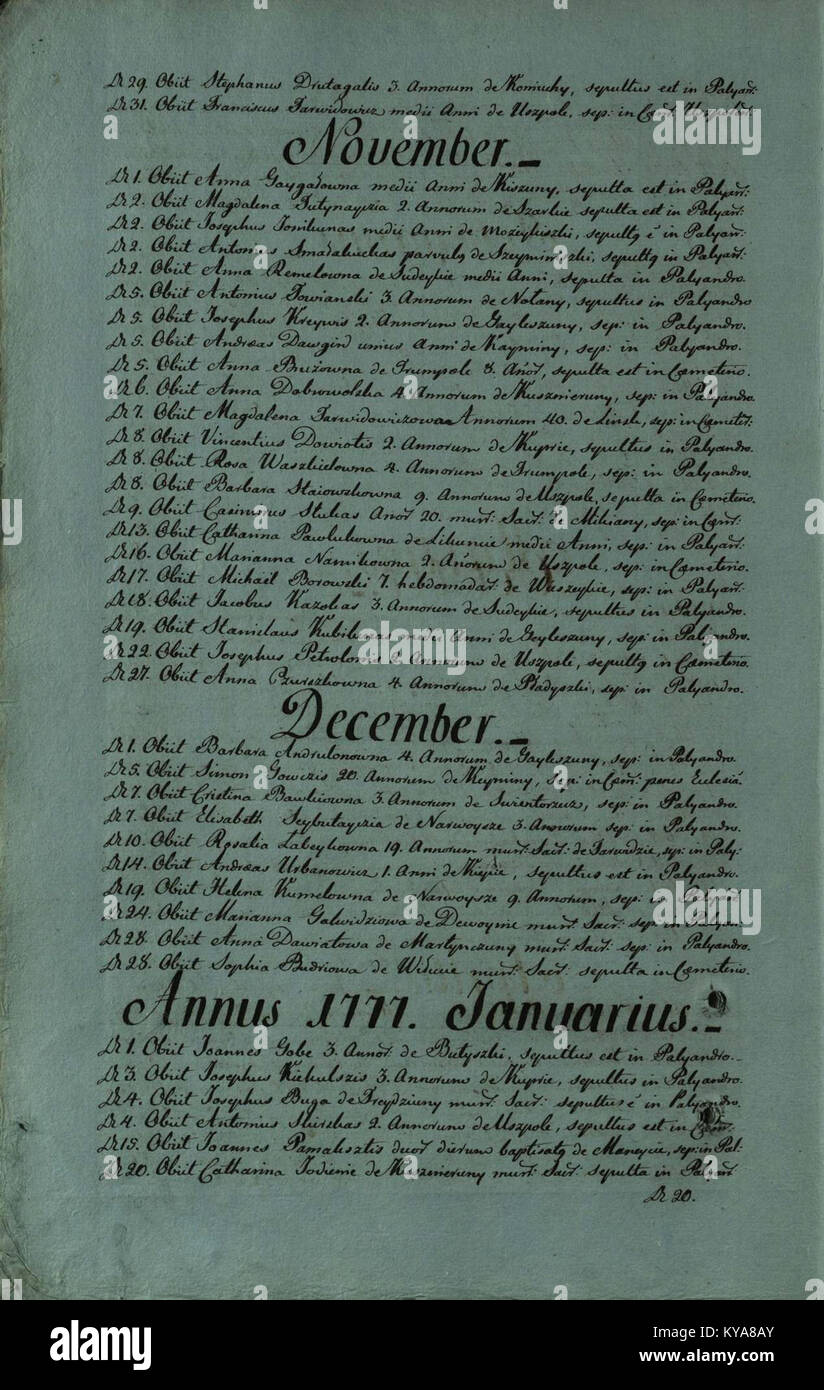 Dr 29. Obiit Stephanus Drutagalis 3. Annorum de Koniuchy, sepultus est in Palyanr:
Dr 31. Obiit Franciscus Tarwidowicz medii Anni de Uszpole, sep: in
November.
Dr 1. Obiit Anna Gaygałowna medii Anni de Kiszuny, sepulta est in Palyanr:
Dr 2. Obiit Magdalena 2. Annorum de Szarkie sepulta est in Palyanr:
Dr 2. Obiit Josephus Jonikunas medii Anni de sepultq ē in Palyanr:
Dr 2. Obiit Antonius parvulq de sepultq in Palyanr:
Dr 2. Obiit Anna Remelowna de Sudeykie medii Anni, sepulta in Palyandro.
Dr 5. Obiit Antonius Towianski 3. Annorum de Notany, sepultus in Palyandro
Dr 5. Obiit Josephus Kreywis 2. Annorum de Gayleszuny, sep: in Palyandro.
Dr 5. Obiit Andreas Dawgird unius Anni de Kayminy, sep: in Palyandro.
Dr 5. Obiit Anna Bużowna de Trumpole 8. Anor, sepulta est in Cœmeterio.
Dr 6. Obiit Anna Dobrowolska 4. Annorum de Kusznieruny, sep: in Palyandro.
Dr 7. Obiit Magdalena Tarwidowiczowa Annorum 40. de sep: in Cœmeter:
Dr 8. Obiit Vincentius Dowiotis 2. Annorum de Kuprie, sepultus in Palyandro.
Dr 8. Obiit Rosa Waszkielowna 4. Annorum de Trumpole, sep: in Palyandro.
Dr 8. Obiit Barbara Staiowzkowna 9. Annorum de Uszpole, sepulta in Cœmeterio.
Dr 9. Obiit Casimirus Stukas Anor 20. munr: Sacr: de Mikiany, sep: in
Dr 13. Obiit Catharina Pawlukowna de medii Anni, sep: in Palyanr:
Dr 16. Obiit Marianna Narnikowna 2. Anorum de Uszpole, sep: in Cœmeterio.
Dr 17. Obiit Michaël Borowski 7. hebdomadar: de Waszeykie, sep: in Palyanr:
Dr 18. Obiit Jacobus Kazokas 3. Annorum de Sudeykie, sepultus in Palyandro.
Dr 19. Obiit Stanislaus Kubilunas medii Anni de Geyleszuny, sep: in Palyandro.
Dr 22. Obiit Josephus Petrolonis 2. Annorum de Uszpole, sepultq in Cœmeterio.
Dr 27. Obiit Anna Czurszkowna 4. Annorum de Pładyszki, sep: in Palyandro.
December.
Dr 1. Obiit Barbara Andrulonowna 4. Annorum de Gayleszuny, sep: in Palyandro.
Dr 5. Obiit Simon Gowczis 20. Annorum de Keyminy, sep: in penes Eclesiā.
Dr 7. Obiit Cristina Bawkiowna 3. Annorum de sep: in Palyandro.
Dr 7. Obiit Elisabeth Seybutayczia de Narwoysze 3. Annorum sep: in Palyandro.
Dr 10. Obiit Rosalia Labeykowna 19. Annorum munr: Sacr: de Tarwidzie, sep: in Paly:
Dr 14. Obiit Andreas Urbanowicz 1. Anni de sepultus est in Palyandro.
Dr 19. Obiit Helena Kumelowna de Narwoysze 9. Annorum, sep: in Palyanr
Dr 24. Obiit Marianna Galwidziowa de munr: Sacr: sep: in
Dr 28. Obiit Anna Dawiatowa de munr: Sacr: sep: in Palyandro.
Dr 28. Obiit Sophia Budriowa de munr: Sacr: sepulta in Cœmeterio.
Annus 1777. Januarius.
Dr 1. Obiit Joannes Gobe 3. Annor: de Butyszki, sepultus est in Palyandro.
Dr 3. Obiit Josephus Kiekulszis 3. Annorum de Kuprie, sepultus in Palyandro.
Dr 4. Obiit Josephus Buga de Treydziuny munr: Sacr: sepultus ē in Palyandro.
Dr 4. Obiit Antonius Skirskas 2. Annorum de Uszpole, sepultus est in
Dr 15. Obiit Joannes Pamalisztis duor dierum baptisatq de sep: in Pal:
Dr 20. Obiit Catharina Jodienie de Kusznieruny munr: Sacr: sepulta in Palyanr
Dr 20.
alamy
Image ID: KYA8AY
www.alamy.com